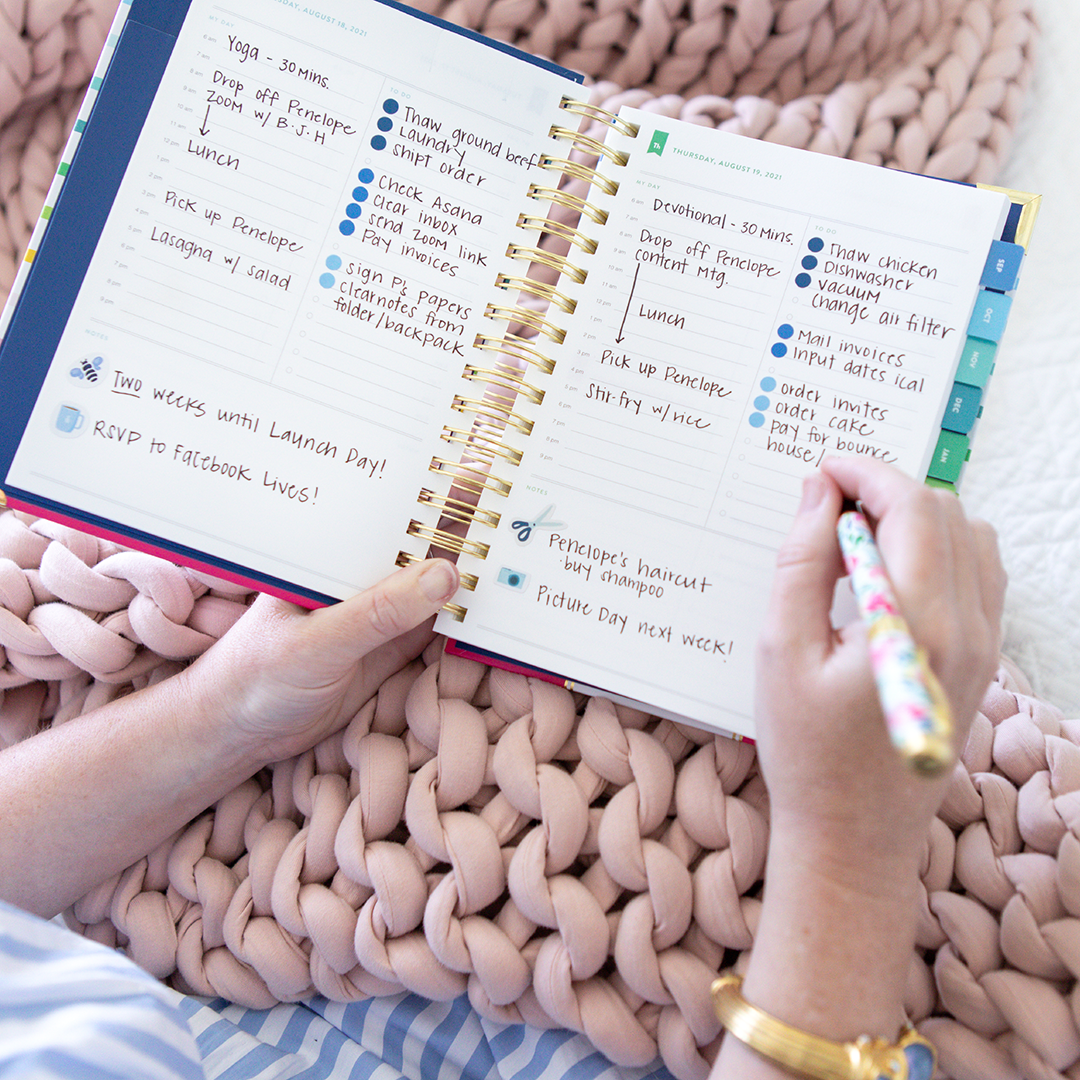 SDAY, AUGUST 18, 2021
MY DAY
Yoga - 30 Mins.
Drop off Penelope
Zoom w/ B.J.H
Lunch
Pick up Penelope
Lasagna w/ salad
TO DO
Thaw ground beef
Laundry
Shipt order
Check Asana
Clear inbox
send Zoom link
Pay invoices
sign P's papers
Clear notes from
folder/backpack
NOTES
Two weeks until Launch Day!
RSVP to Facebook Lives!
Th
THURSDAY, AUGUST 19, 2021
MY DAY
Devotional - 30 Mins.
Drop off Penelope
content Mtg.
Lunch
Pick up Penelope
Stir-fry w/ rice
TO DO
Thaw chicken
Dishwasher
vacuum
change air filter
Mail invoices
Input dates ical
order invites
order cake
Pay for bounce
house/
NOTES
Penelope's haircut
·buy shampoo
Picture Day next week!
SEP
OCT
NOV
DEC
JAN